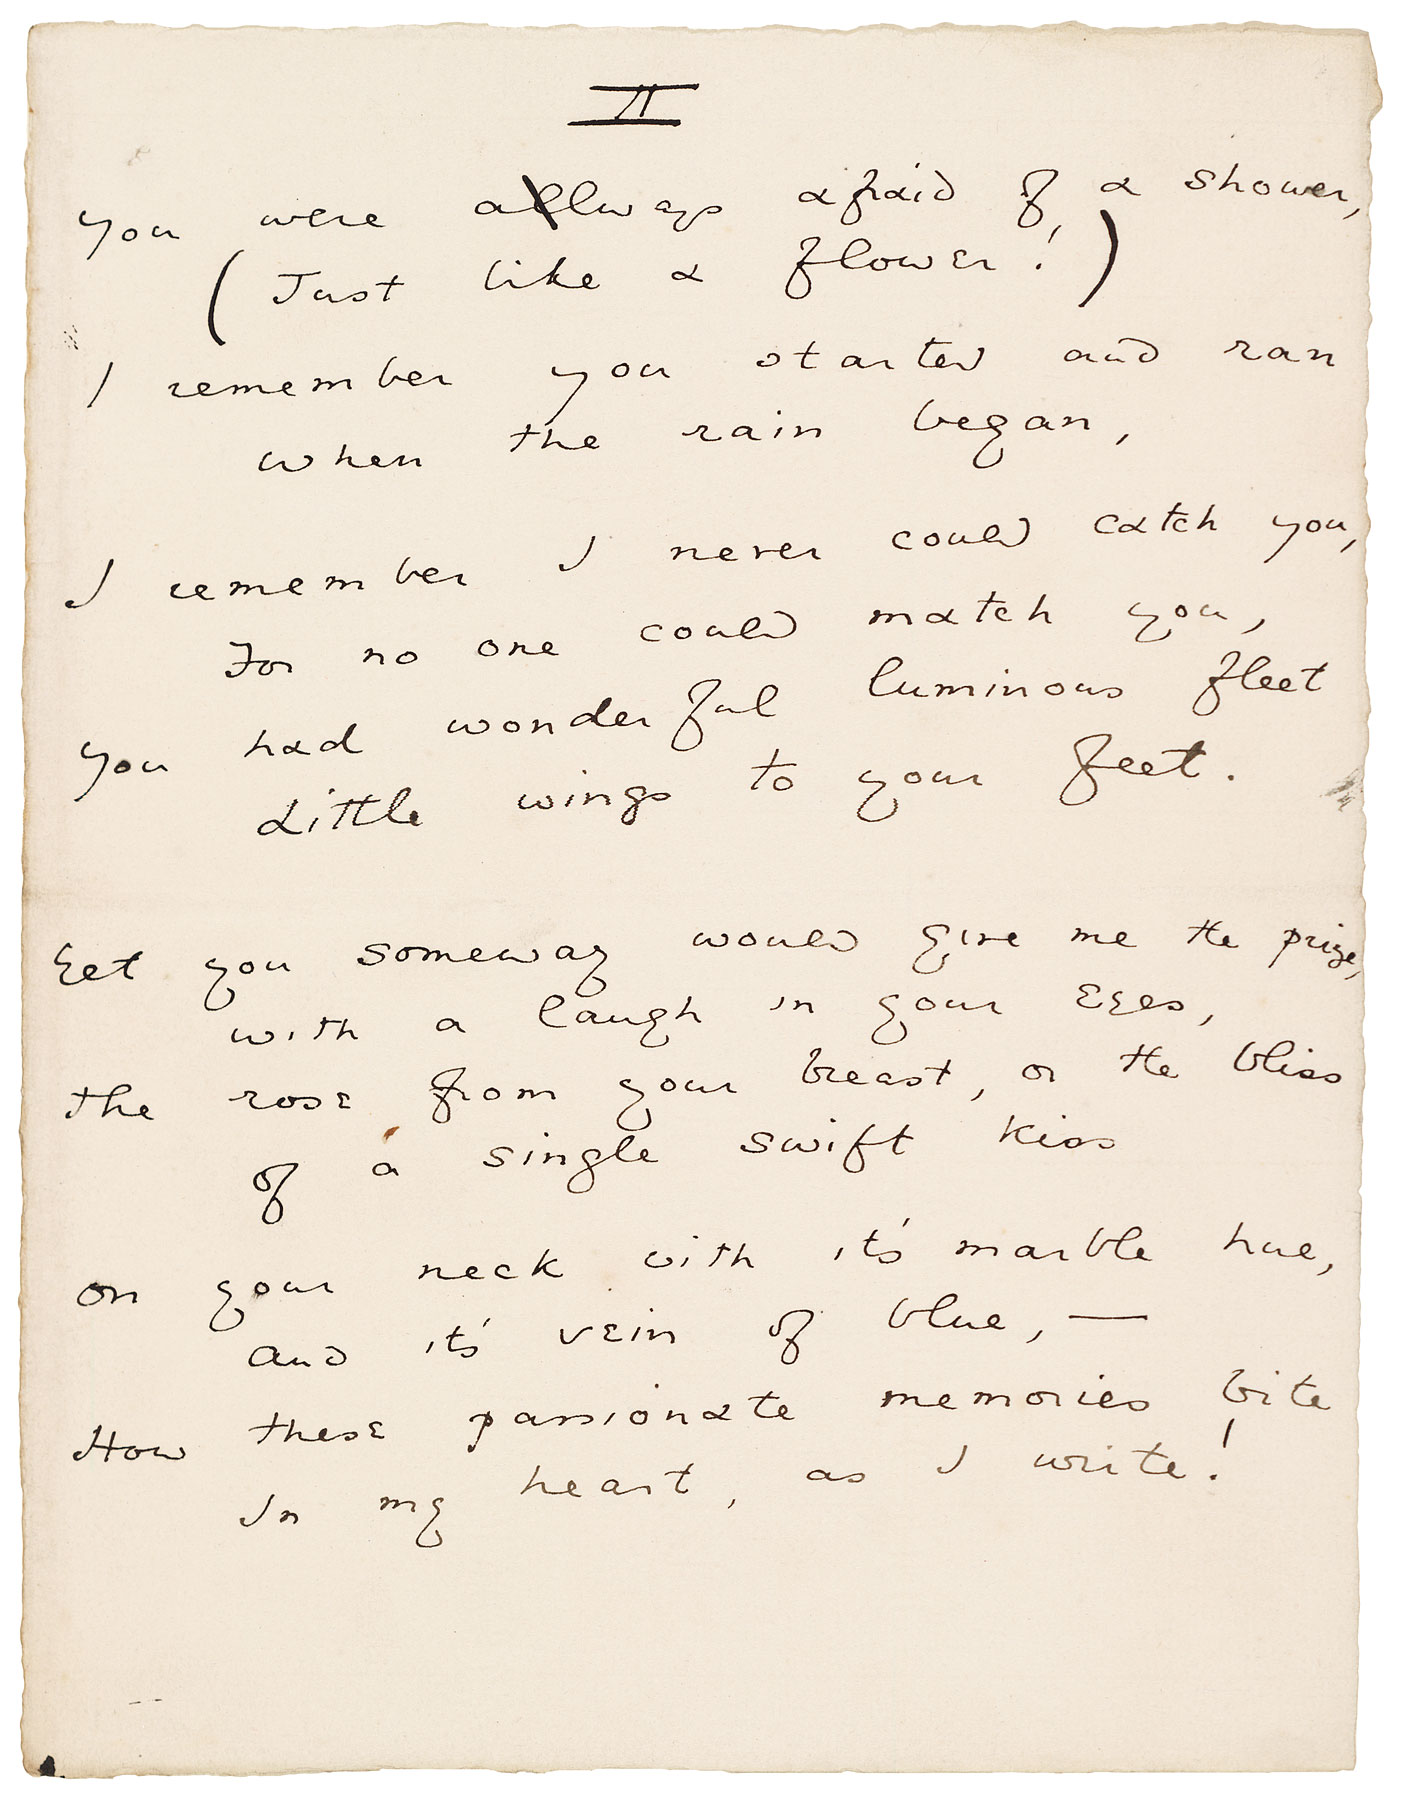 II
you were always afraid of a shower,
(Just like a flower!)
I remember you started and ran
when the rain began,
I remember I never could catch you,
For no one could match you,
you had wonderful luminous fleet
Little wings to your feet.
Yet you someway would give me the prize,
with a laugh in your eyes,
the rose from your breast, or the bliss
of a single swift kiss
on your neck with it's marble hue,
and it's vein of blue, —
How these passionate memories bite
In my heart, as I write!